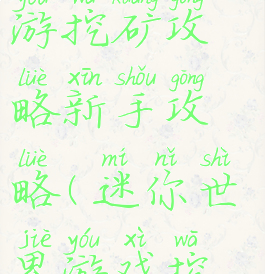 yóu wā kuàng gōng
游挖矿攻
lüè xīn shǒu gōng
略新手攻
lüè mí nǐ shì
略(迷你世
jiè yóu xì wā
界游戏挖